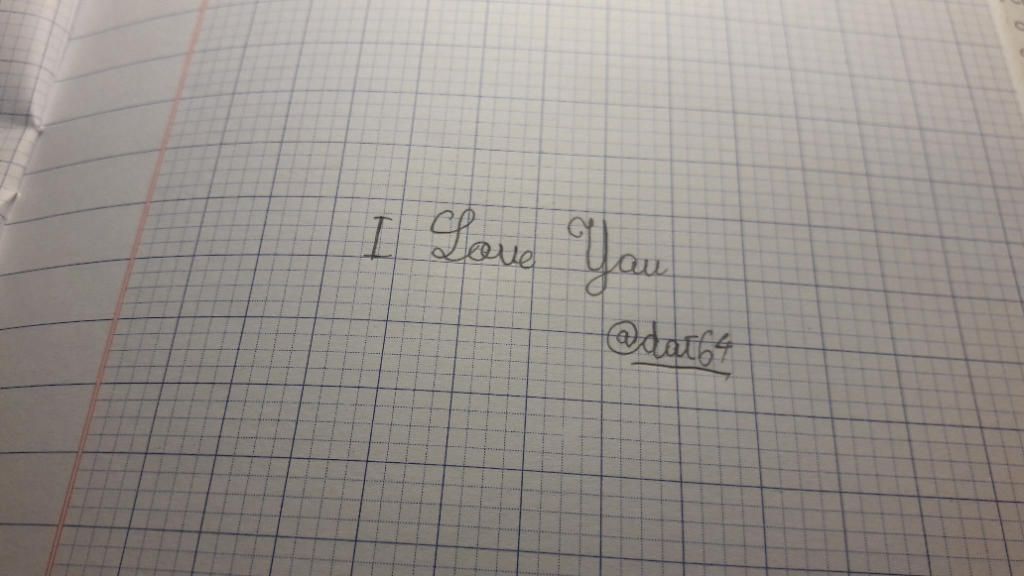 I Love You
@dat64